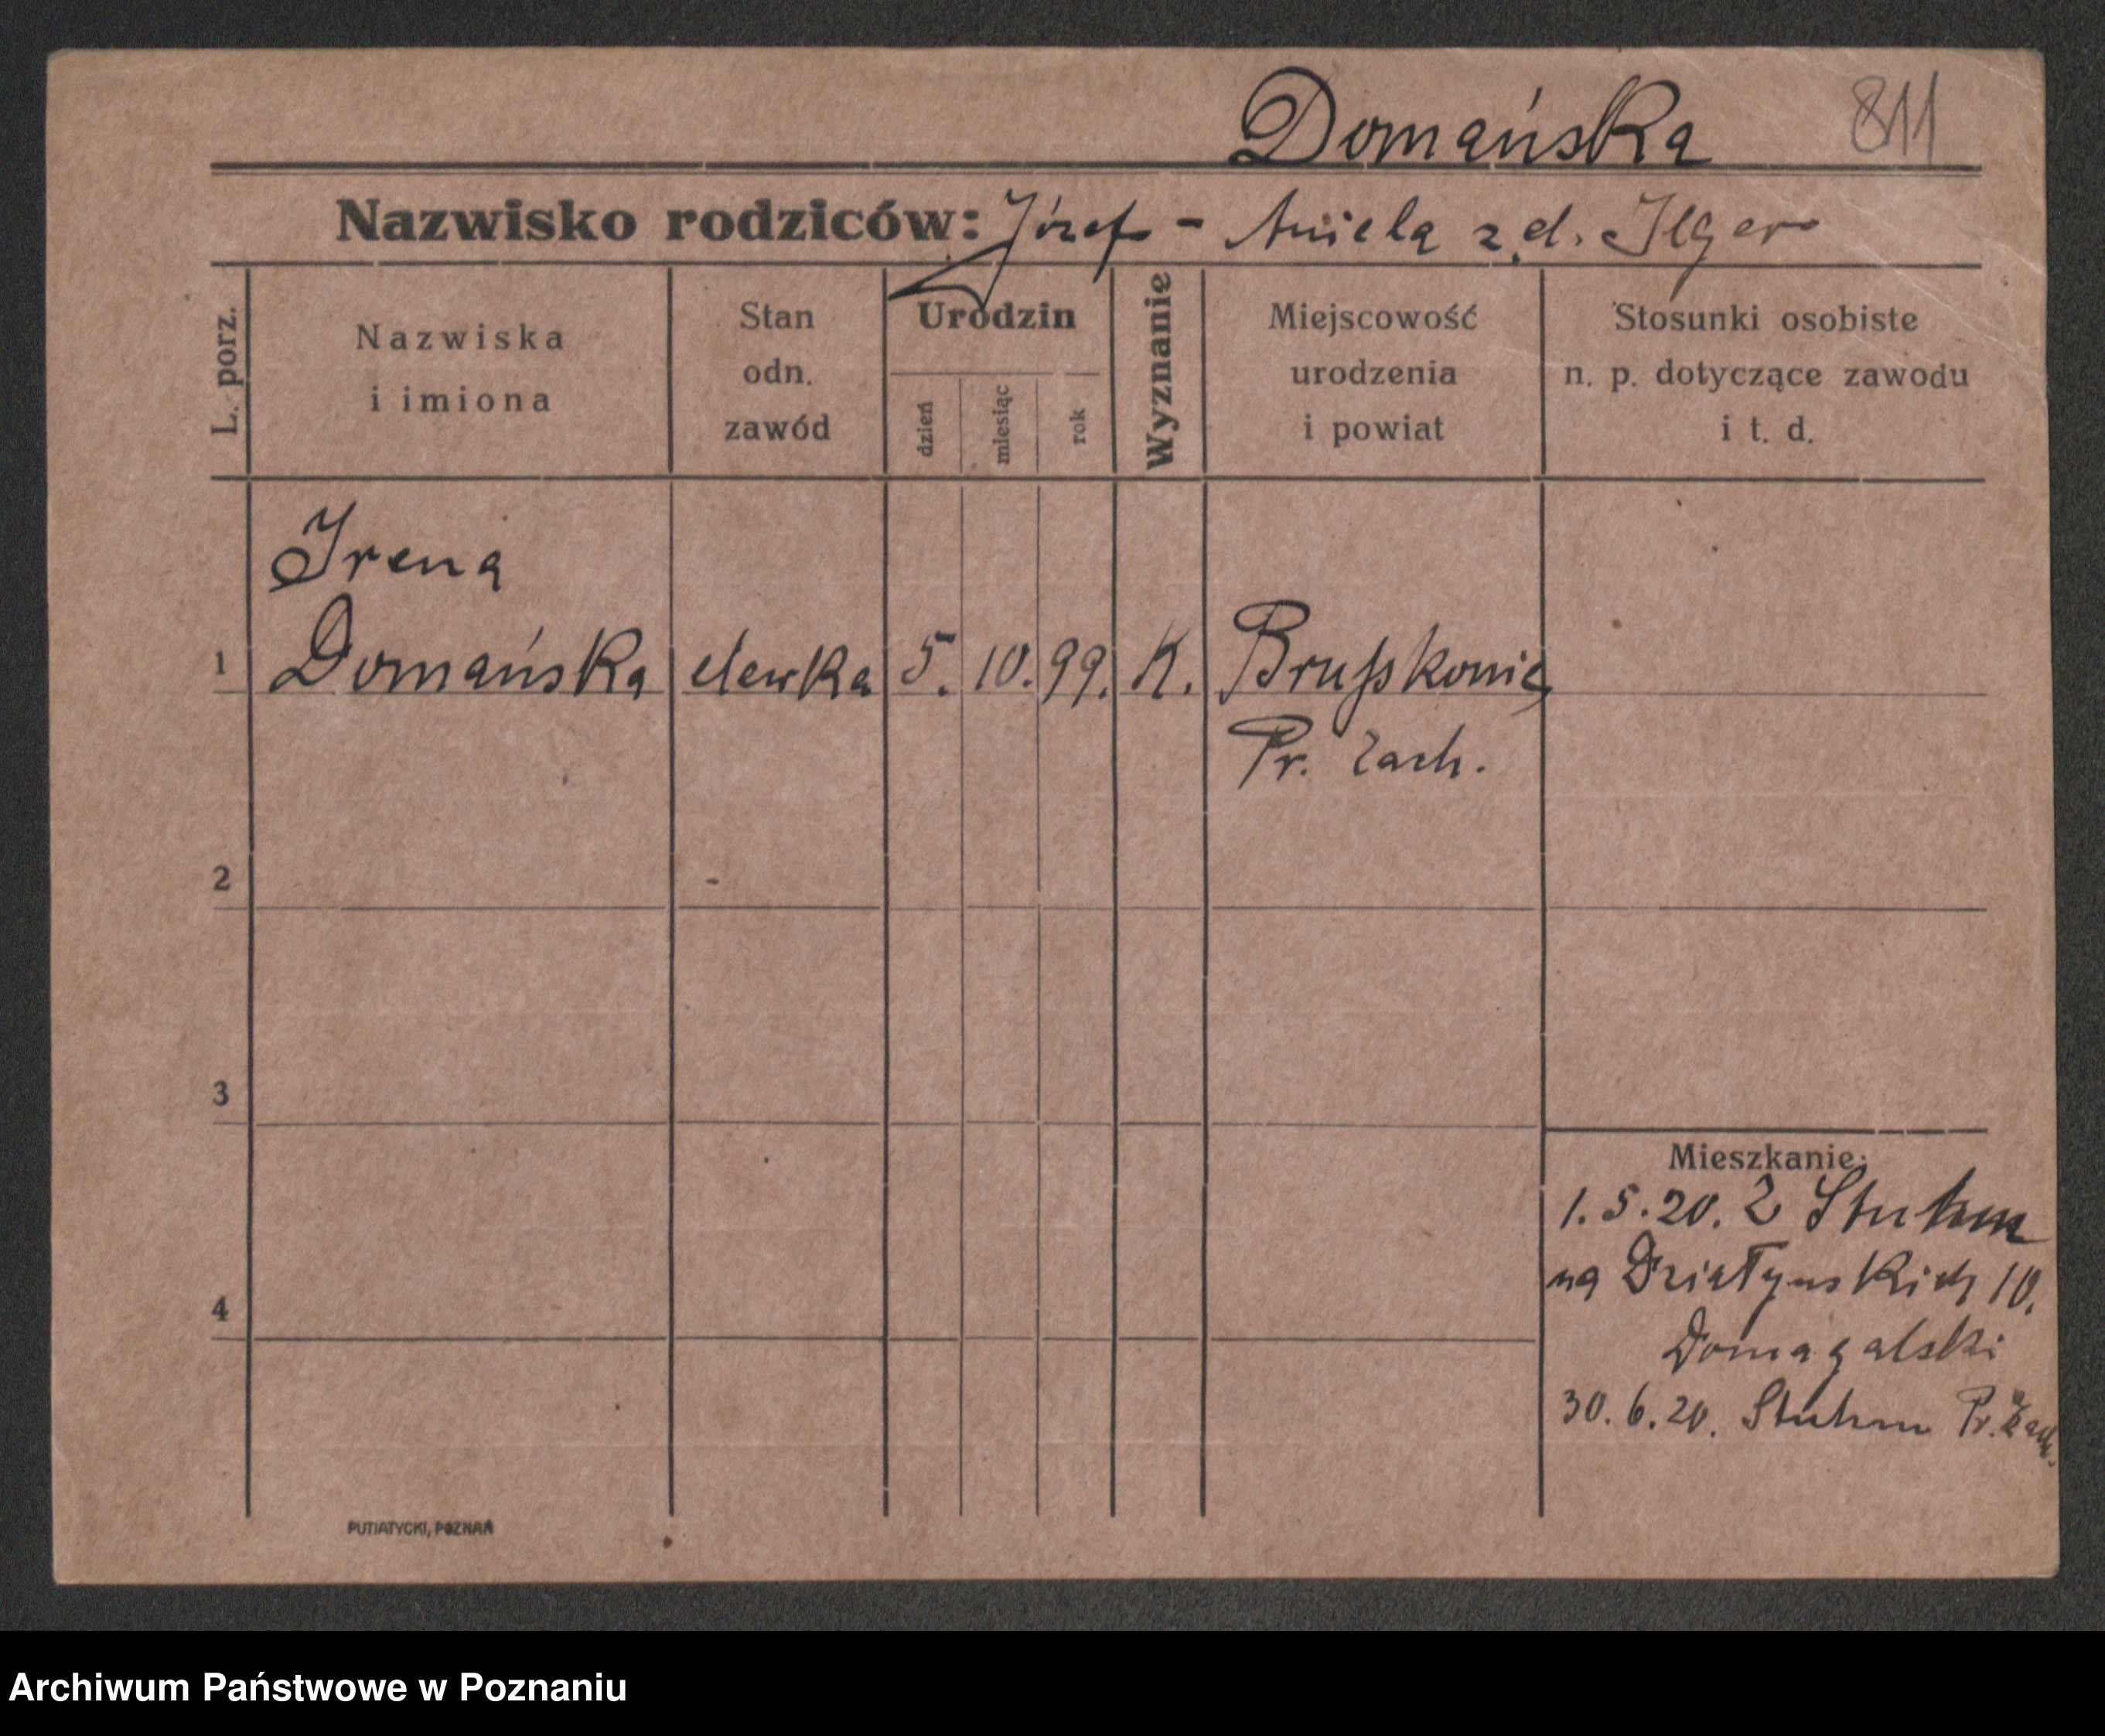 Domańska 811
Nazwisko rodziców: Józef - Aniela z d. Ilger
L. porz.
Nazwiska
i imiona
Stan
odn.
zawód
Urodzin
dzień
miesiąc
rok
Wyznanie
Miejscowość
urodzenia
i powiat
Stosunki osobiste
n. p. dotyczące zawodu
i t. d.
Irena
1 Domańska elewka 5. 10. 99. K.
Pr. Zach.
2
3
4
Mieszkanie:
1.5.20. Z Stuhm
na Działyńskich 10.
Domagalski
30.6.20. Stuhm Pr. Zach.
PUTIATYCKI, POZNAŃ
Archiwum Państwowe w Poznaniu